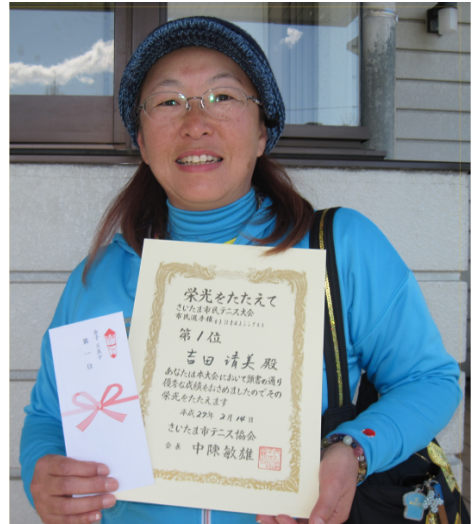 栄光をたたえて
さいたま市民テニス大会
市民選手権
第1位
吉田 靖美 殿
あなたは本大会において頭書の通り
優秀な成績をおさめましたのでその
栄光をたたえます
平成27年 2月14日
さいたま市テニス協会
会長 中陳敏雄
第一位